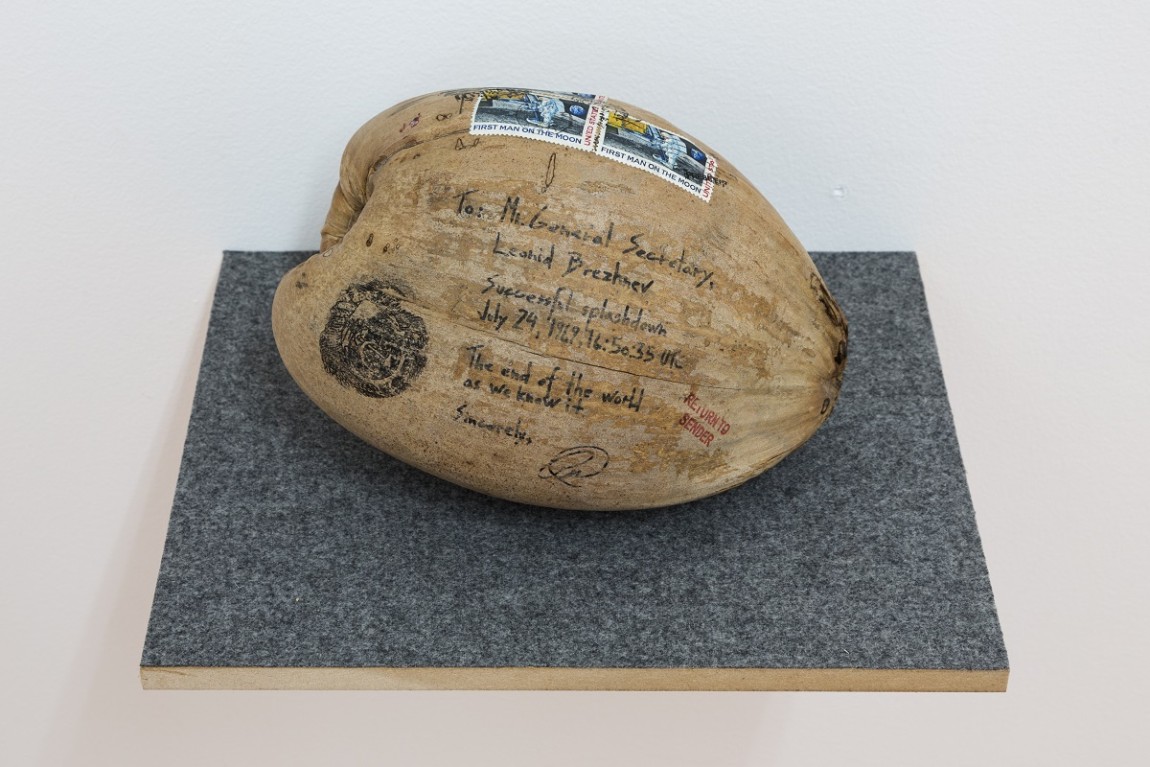 FIRST MAN ON THE MOON
UNITED STATES
FIRST MAN ON THE MOON
UNITED
To: Mr. General Secretary,
Leonid Brezhnev
Successful splashdown
July 24, 1969, 16:50:35 UTC
The end of the world
as we know it
Sincerely,
RETURN TO
SENDER